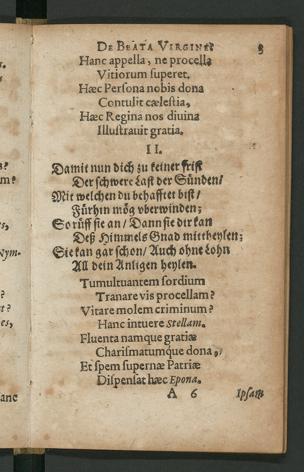 DE BEATA VIRGINE.
Hanc appella, ne procella
Vitiorum superet.
Hæc Persona nobis dona
Contulit cælestia,
Hæc Regina nos diuina
Illustrauit gratia.
II.
Damit nun dich zu keiner frist
Der schwere Last der Sünden/
Mit welchen du behafftet bist/
Fürhin mög vberwinden;
So rüff sie an/ Dann sie dir kan
Deß Himmels Gnad mittheylen;
Sie kan gar schon/ Auch ohne Lohn
All dein Anligen heylen.
Tumultuantem sordium
Tranare vis procellam?
Vitare molem criminum?
Hanc intuere Stellam.
Fluenta namque gratiæ
Charismatumque dona,
Et spem supernæ Patriæ
Dispensat hæc Epona.
A 6 Ipsam